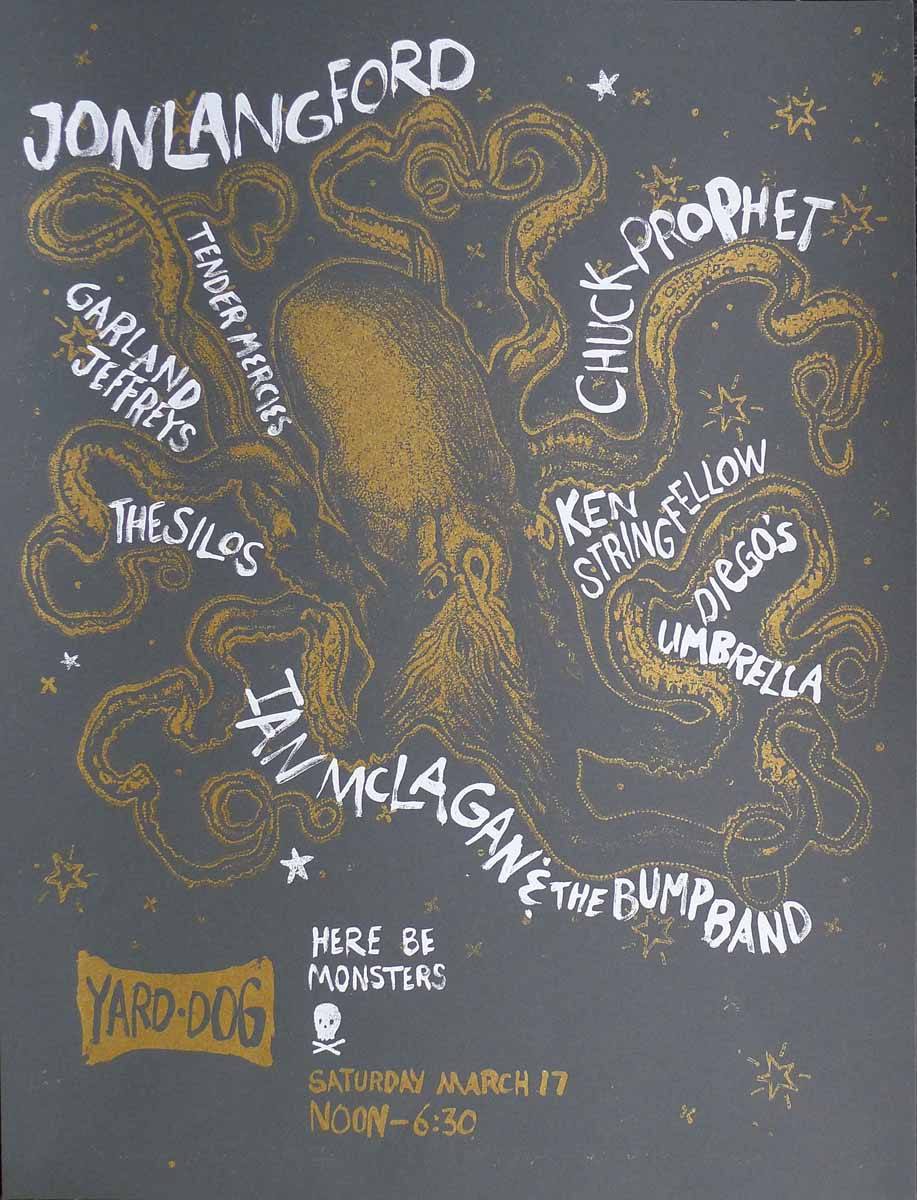 JON LANGFORD
TENDER MERCIES
GARLAND
JEFFREYS
THE SILOS
CHUCK PROPHET
KEN
STRINGFELLOW
DIEGO'S
UMBRELLA
IAN McLAGAN & THE BUMP BAND
HERE BE
MONSTERS
YARD·DOG
SATURDAY MARCH 17
NOON-6:30